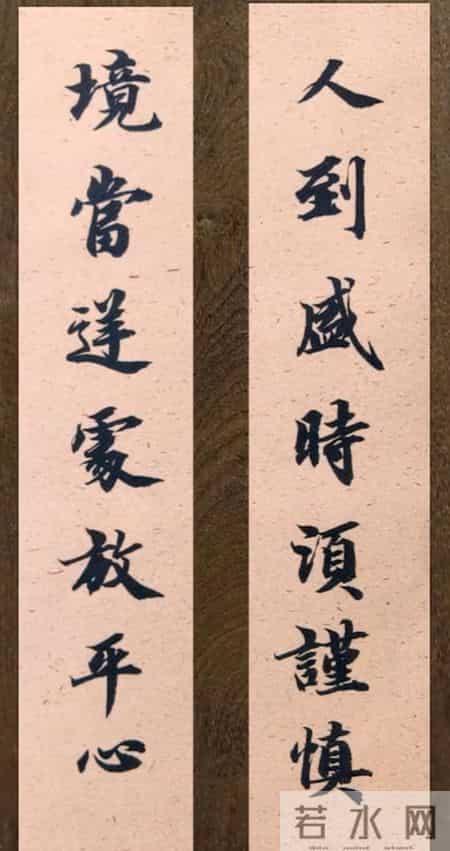 人到盛時須謹慎
境當逆處放平心
若水网